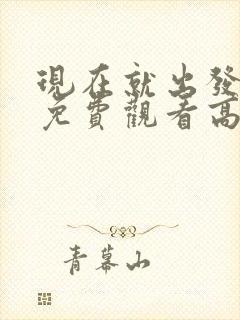 現在就出發
免費觀看高
青幕山